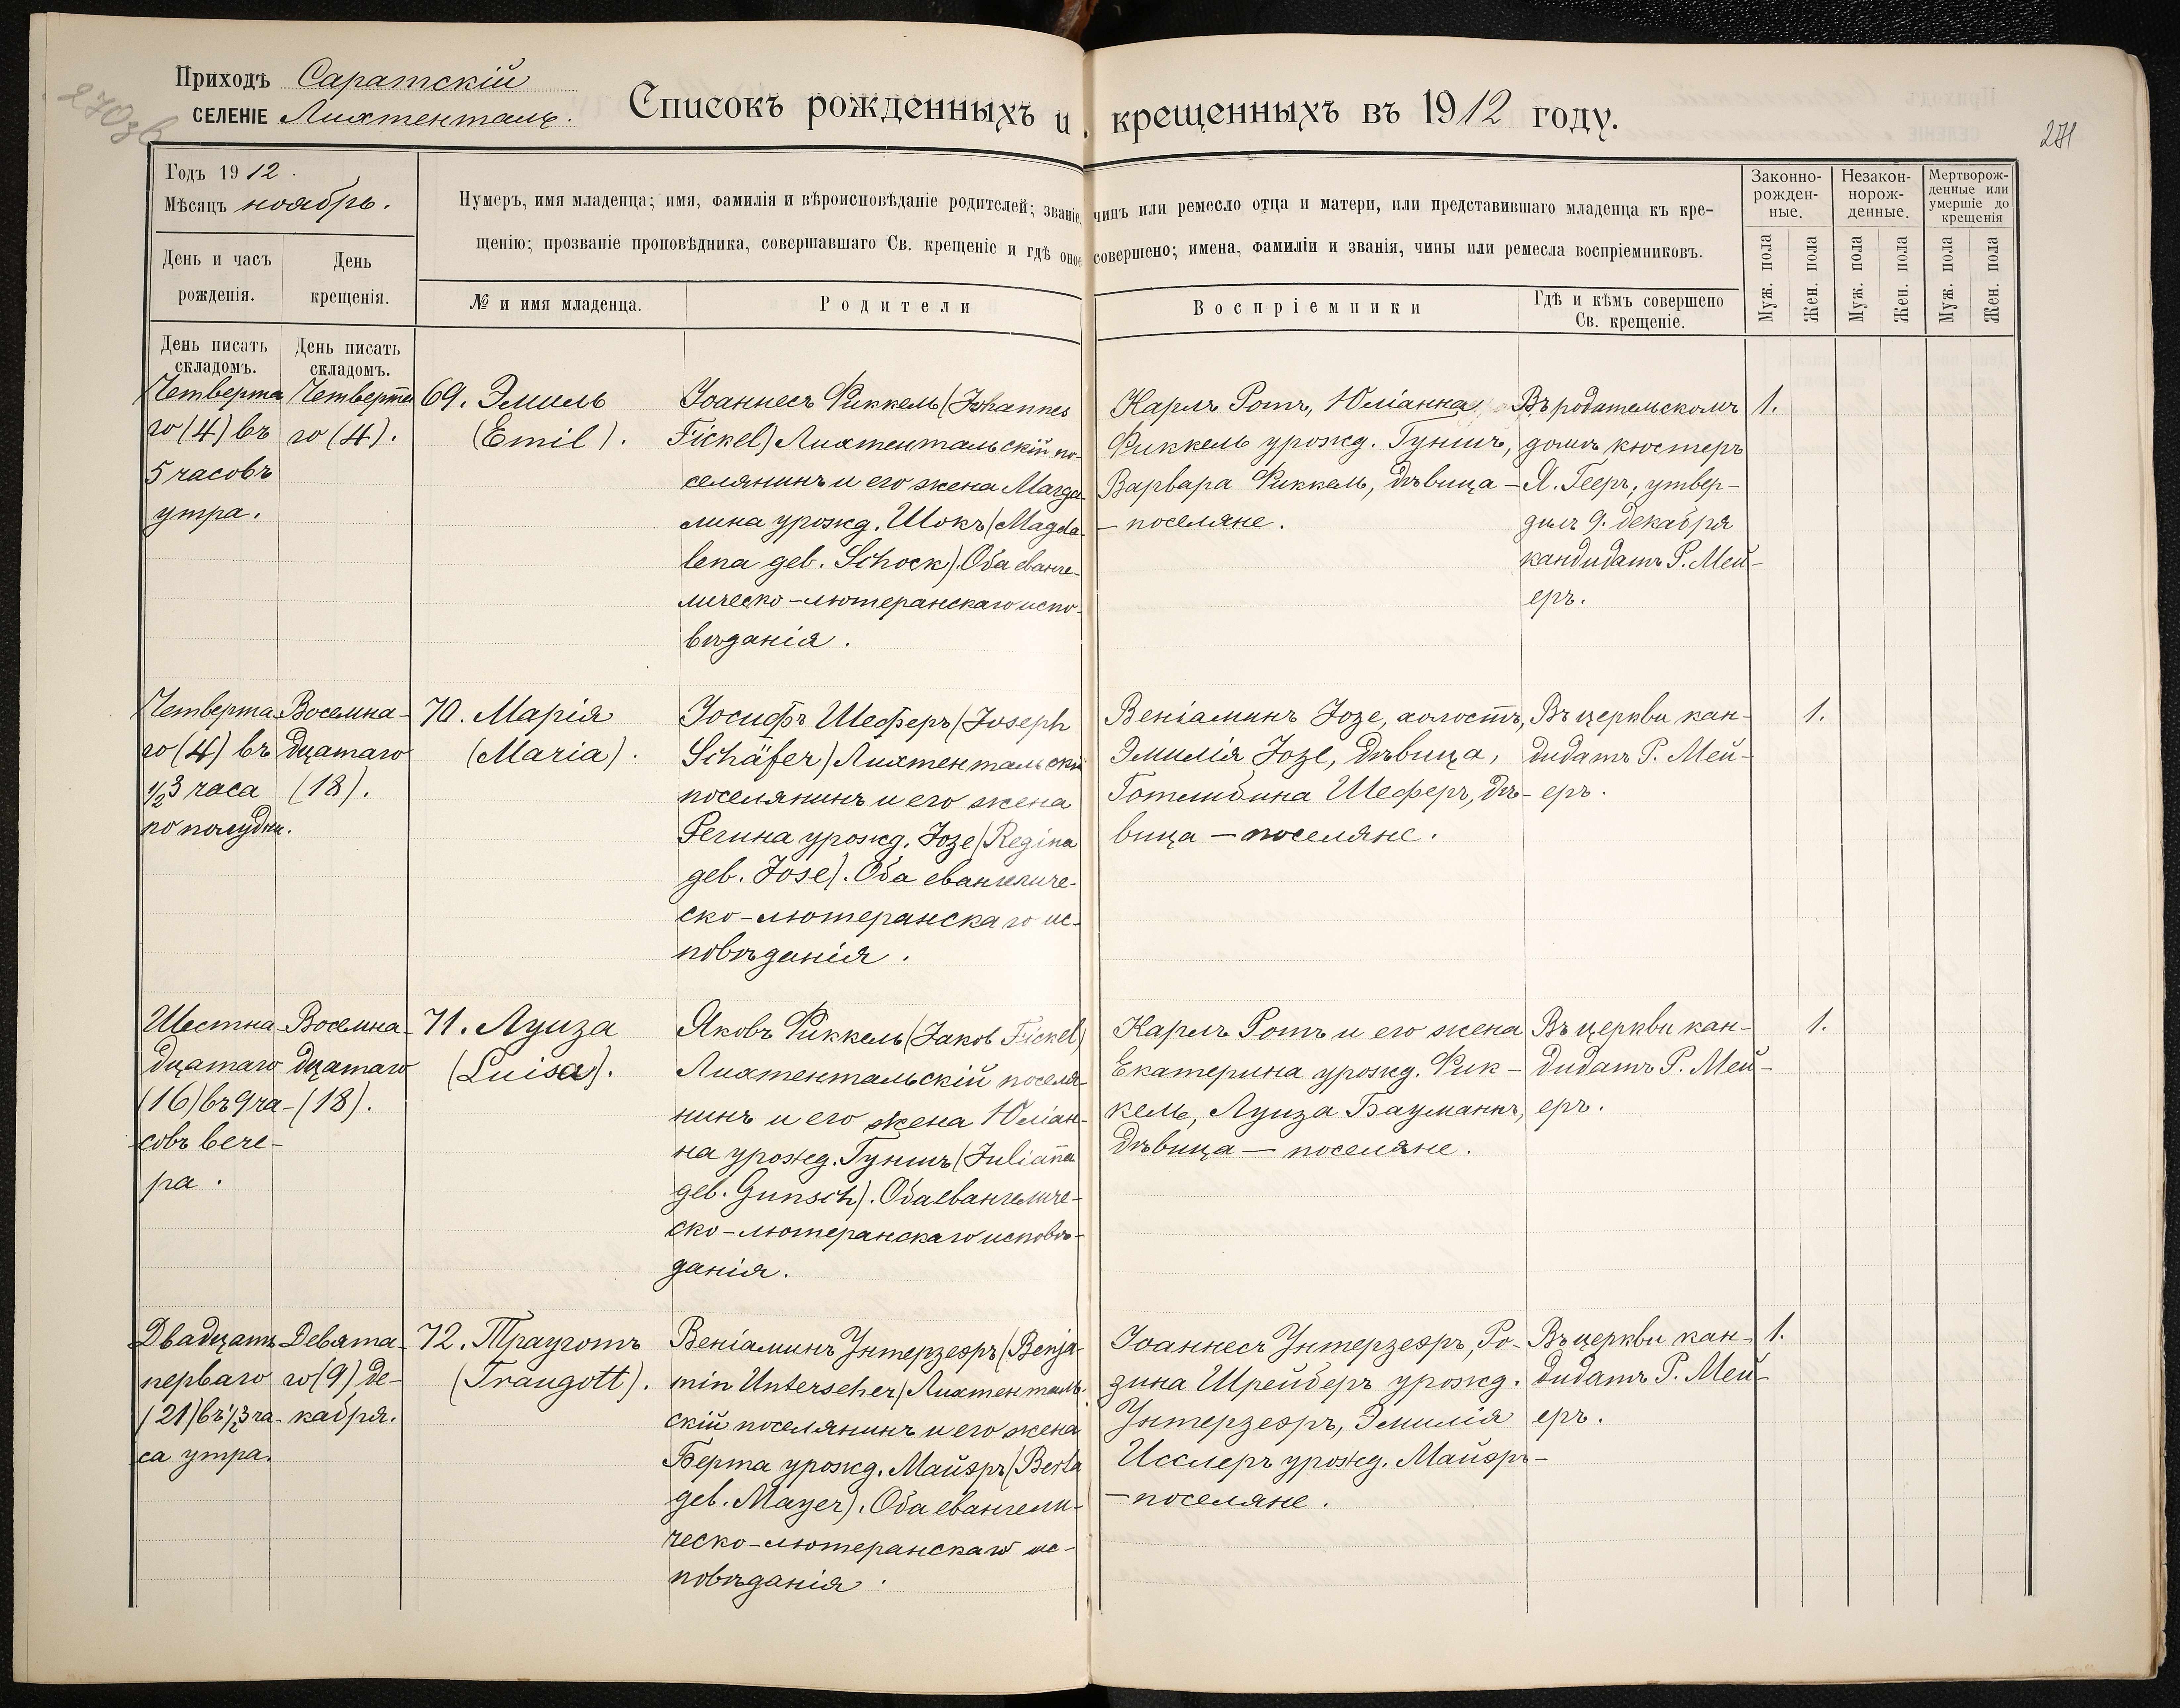 270зв
Приходъ Саратскій
СЕЛЕНІЕ Лихтенталь.
Списокъ рожденныхъ и крещенныхъ въ 1912 году.
271
Годъ 1912.
Мѣсяцъ ноябрь.
День и часъ рожденія.
День крещенія.
Нумеръ, имя младенца; имя, фамилія и вѣроисповѣданіе родителей; званіе, чинъ или ремесло отца и матери, или представившаго младенца къ кре-
щенію; прозваніе проповѣдника, совершавшаго Св. крещеніе и гдѣ оное совершено; имена, фамиліи и званія, чины или ремесла воспріемниковъ.
№ и имя младенца.
Родители
Воспріемники
Гдѣ и кѣмъ совершено
Св. крещеніе.
Законно-
рожден-
ные.
Незакон-
норож-
денные.
Мертворож-
денные или
умершіе до
крещенія
Муж. пола
Жен. пола
Муж. пола
Жен. пола
Муж. пола
Жен. пола
День писать
складомъ.
День писать
складомъ.
Четверта
го (4) въ
5 часовъ
утра.
Четверта
го (4).
69. Эмиль
(Emil).
Іоаннесъ Фиккель (Johannes
Fickel) Лихтентальскій по-
селянинъ и его жена Магда-
лина урожд. Шокъ (Magda-
lena geb. Schock). Оба еванге-
лическо-лютеранскаго испо-
вѣданія.
Карлъ Ротъ, Юліанна
Фиккель урожд. Гуншъ,
Варвара Фиккель, дѣвица –
– поселяне.
Въ родительскомъ
домѣ кюстеръ
Я. Гееръ; утвер-
дилъ 9. декабря
кандидатъ Р. Мей-
еръ.
1.
Четверта-
го (4) въ
½3 часа
по полудни.
Восемна-
дцатаго
(18).
70. Марія
(Maria).
Іосифъ Шеферъ (Joseph
Schäfer) Лихтентальскій
поселянинъ и его жена
Регина урожд. Іозе (Regina
geb. Jose). Оба евангеличе-
ско-лютеранскаго ис-
повѣданія.
Веніаминъ Іозе, холостъ,
Эмилія Іозе, дѣвица,
Готлибина Шеферъ, дѣ-
вица – поселяне.
Въ церкви кан-
дидатъ Р. Мей-
еръ.
1.
Шестна-
дцатаго
(16) въ 9 ча-
совъ вече-
ра.
Восемна-
дцатаго
(18).
71. Луиза
(Luisa).
Яковъ Фиккель (Jakob Fickel)
Лихтентальскій поселя-
нинъ и его жена Юліан-
на урожд. Гуншъ (Julian̄a
geb. Gunsch). Оба евангеличе-
ско-лютеранскаго исповѣ-
данія.
Карлъ Ротъ и его жена
Екатерина урожд. Фик-
кель, Луиза Бауманнъ,
дѣвица – поселяне.
Въ церкви кан-
дидатъ Р. Мей-
еръ.
1.
Двадцать
перваго
(21) въ ½3 ча-
са утра.
Девята-
го (9) де-
кабря.
72. Трауготъ
(Traugott).
Веніаминъ Унтерзееръ (Benja-
min Unterseher) Лихтенталь-
скій поселянинъ и его жена
Берта урожд. Майэръ (Berta
geb. Mayer). Оба евангели-
ческо-лютеранскаго ис-
повѣданія.
Іоаннесъ Унтерзееръ, Ро-
зина Шрейберъ урожд.
Унтерзееръ, Эмилія
Исслеръ урожд. Майэръ –
– поселяне.
Въ церкви кан-
дидатъ Р. Мей-
еръ.
1.